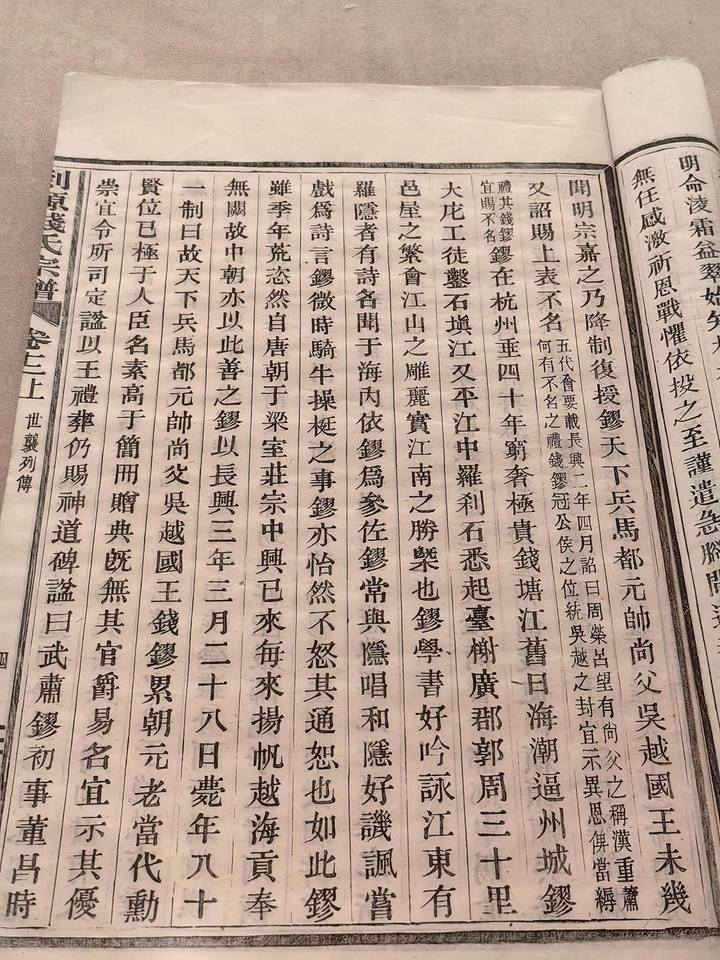 明命淩霜益翠始
無任感激祈恩戰懼依投之至謹遣急腳間道
聞明宗嘉之乃降制復授鏐天下兵馬都元帥尚父吳越國王未幾
又詔賜上表不名
五代會要載長興二年四月詔曰周榮呂望有尙父之稱漢重蕭
何有不名之禮錢鏐冠公侯之位統吳越之封宜示異恩俾當縟
禮其錢鏐
宜賜不名
鏐在杭州垂四十年窮奢極貴錢塘江舊日海潮逼州城鏐
大庀工徒鑿石塡江又平江中羅刹石悉起臺榭廣郡郭周三十里
邑屋之繁會江山之雕麗實江南之勝槩也鏐學書好吟詠江東有
羅隱者有詩名聞于海內依鏐爲參佐鏐常與隱唱和隱好譏諷嘗
戲爲詩言鏐微時騎牛操梃之事鏐亦怡然不怒其通恕也如此鏐
雖季年荒恣然自唐朝于梁室莊宗中興已來每來揚帆越海貢奉
無闕故中朝亦以此善之鏐以長興三年三月二十八日薨年八十
一制曰故天下兵馬都元帥尚父吳越國王錢鏐累朝元老當代勳
賢位已極于人臣名素高于簡冊贈典旣無其官爵易名宜示其優
崇宜令所司定謚以王禮葬仍賜神道碑謚曰武肅鏐初事董昌時
剡源錢氏宗譜
卷十二上
世襲列傳